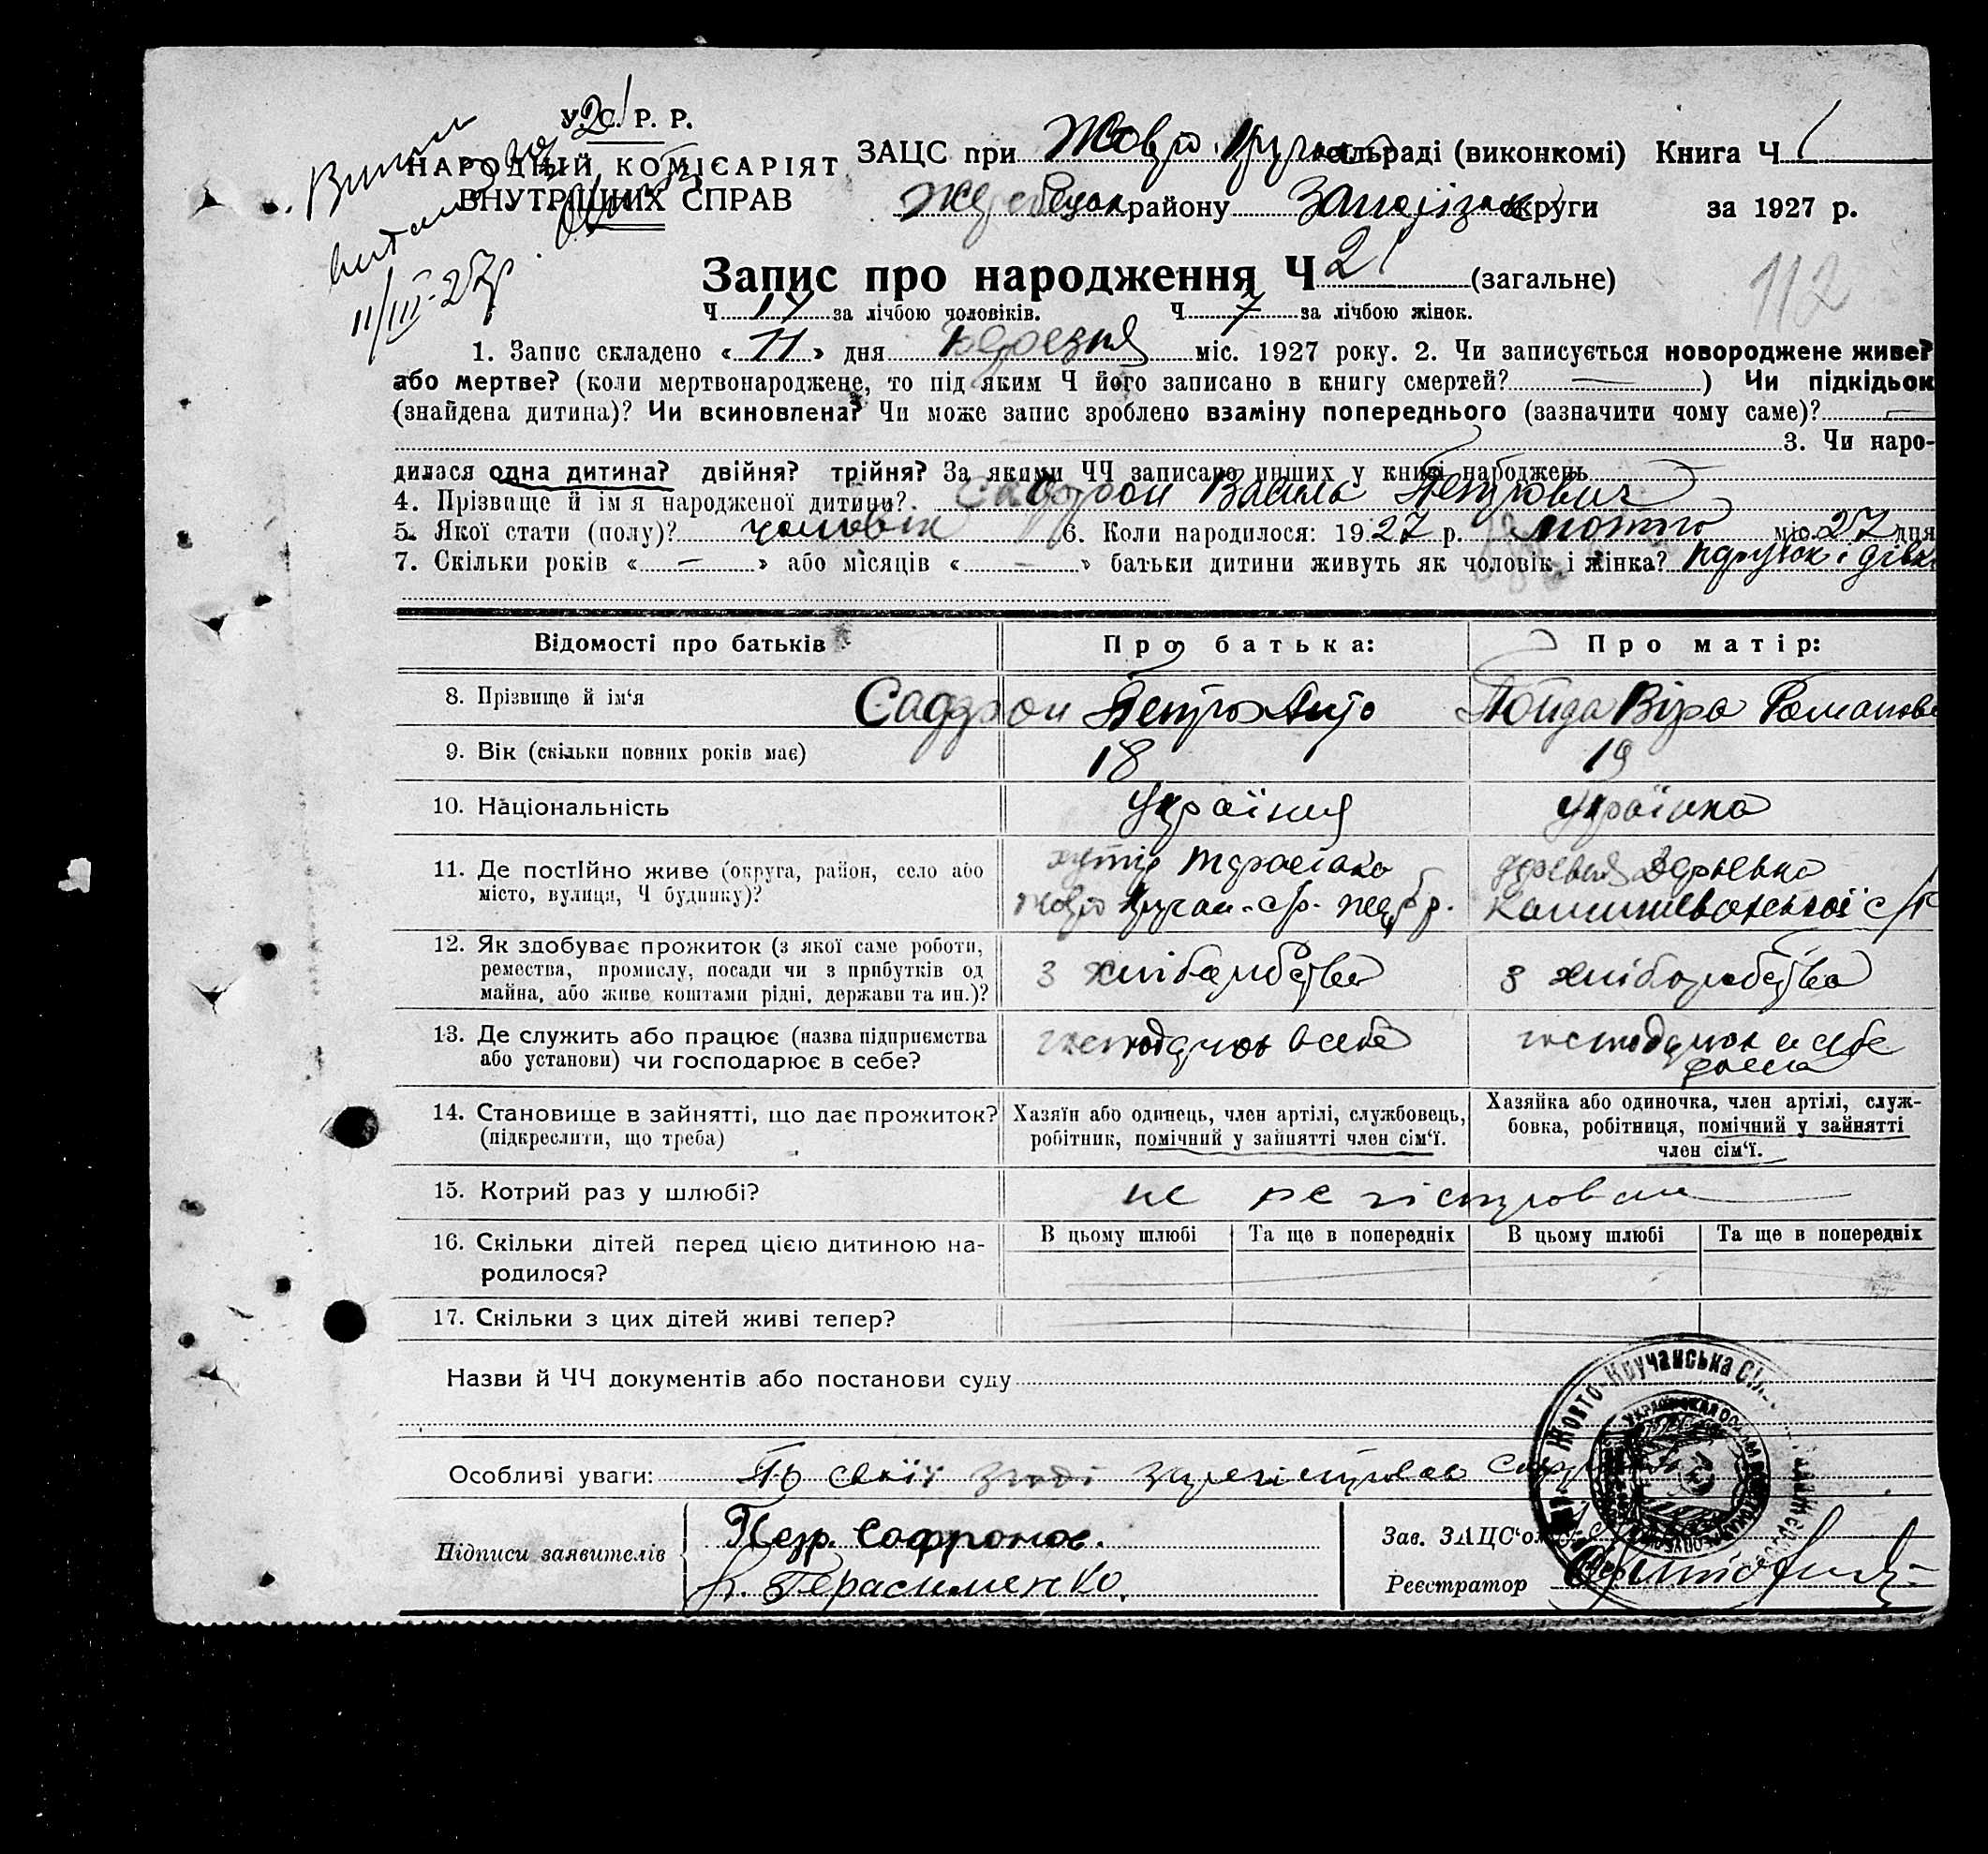 У.С.Р.Р.
НАРОДНІЙ КОМІСАРІЯТ
ВНУТРІШНІХ СПРАВ
11/III-27р.
ЗАЦС при Жовто Кручан сільраді (виконкомі) Книга Ч 1
Жеребецьк району Запоріжж округи за 1927 р.
Запис про народження Ч 21 (загальне)
112
Ч 17 за лічбою чоловіків. Ч 7 за лічбою жінок.
1. Запис складено « 11 » дня Березня міс. 1927 року. 2. Чи записується новороджене живе?
або мертве? (коли мертвонароджене, то під яким Ч його записано в книгу смертей? — ) Чи підкідьок
(знайдена дитина)? Чи всиновлена? Чи може запис зроблено взаміну попереднього (зазначити чому саме)? —
3. Чи наро-
дилася одна дитина? двійня? трійня? За якими ЧЧ записано инших у книзі народжень
4. Прізвище й ім я народженої дитини? Сафрон Василь Петрович
5. Якої стати (полу)? чоловік 6. Коли народилося: 1927 р. лютого міс. 27 дня
7. Скільки років « — » або місяців « — » батьки дитини живуть як чоловік і жінка?
Відомості про батьків Про батька: Про матір:
8. Прізвище й ім‘я Сафрон Петро Пойда Віра Романов
9. Вік (скільки повних років має) 18 19
10. Національність Українец Українка
11. Де постійно живе (округа, район, село або
місто, вулиця, Ч будинку)?
хутір
Жовто Кручан. с/р.
12. Як здобуває прожиток (з якої саме роботи,
ремества, промислу, посади чи з прибутків од
майна, або живе коштами рідні, держави та ин.)?
з хліборобства з хліборобства
13. Де служить або працює (назва підприємства
або установи) чи господарює в себе?
в себе
14. Становище в зайнятті, що дає прожиток?
(підкреслити, що треба)
Хазяїн або одинець, член артілі, службовець,
робітник, помічний у зайнятті член сім‘ї.
Хазяйка або одиночка, член артілі, служ-
бовка, робітниця, помічний у зайнятті
член сім‘ї.
15. Котрий раз у шлюбі? не регістровані
16. Скільки дітей перед цією дитиною на-
родилося?
В цьому шлюбі Та ще в попередніх В цьому шлюбі Та ще в попередніх
17. Скільки з цих дітей живі тепер?
Назви й ЧЧ документів або постанови суду
Жовто-Кручанська
Особливі уваги: По своїй згоді
Підписи заявителів
Петр. Софронов.
Герасименко.
Зав. ЗАЦС‘ом
Реєстратор